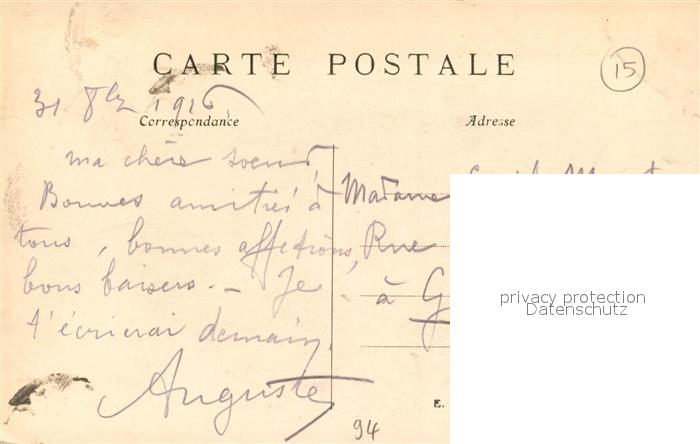 CARTE POSTALE
15
31 8bre 1916
Correspondance
Adresse
ma chère soeur,
Bonnes amitiés à
tous, bonnes affections,
bons baisers. - Je
t'écrirai demain.
Auguste
Madame
Rue
à G
privacy protection
Datenschutz
E.
94